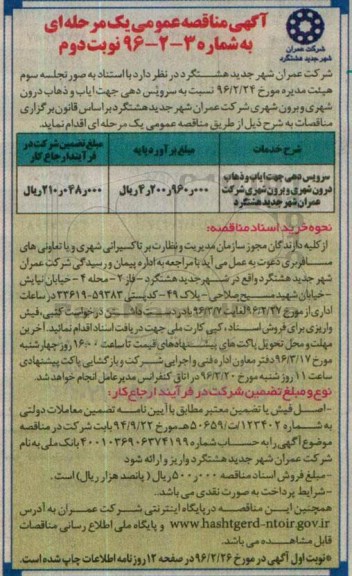 آگهی مناقصه عمومی یک مرحله ای
به شماره ۳-۲-۹۶ نوبت دوم
شرکت عمران
شهر جدید هشتگرد
شرکت عمران شهر جدید هشتگرد در نظر دارد با استناد به صورتجلسه سوم
هیئت مدیره مورخ ۹۶/۲/۲۴ نسبت به سرویس دهی جهت ایاب و ذهاب درون
شهری و برون شهری شرکت عمران شهر جدید هشتگرد بر اساس قانون برگزاری
مناقصات به شرح ذیل از طریق مناقصه عمومی یک مرحله ای اقدام نماید.
شرح خدمات
مبلغ برآورد پایه
مبلغ تضمین شرکت در
فرآیند ارجاع کار
سرویس دهی جهت ایاب و ذهاب
درون شهری و برون شهری شرکت
عمران شهر جدید هشتگرد
۴٫۲۰۰٫۹۶۰٫۰۰۰ ریال
۲۱۰٫۰۴۸٫۰۰۰ ریال
نحوه خرید اسناد مناقصه:
از کلیه دارندگان مجوز سازمان مدیریت و نظارت بر تاکسیرانی شهری و یا تعاونی های
مسافربری دعوت به عمل می آید با مراجعه به اداره پیمان و رسیدگی شرکت عمران
شهر جدید هشتگرد واقع در شهر جدید هشتگرد - فاز ۲ - محله ۴ - خیابان نیایش
- خیابان شهید مسیح صلاحی - پلاک ۴۹ - کدپستی ۵۹۳۸۳-۳۳۶۱۹ در ساعات
اداری از مورخ ۹۶/۲/۲۷ لغایت ۹۶/۳/۷ با در دست داشتن درخواست کتبی، فیش
واریزی برای فروش اسناد، کپی کارت ملی جهت دریافت اسناد اقدام نمائید. آخرین
مهلت و محل تحویل پاکت های پیشنهادهای قیمت تا ساعت ۱۶:۰۰ روز چهارشنبه
مورخ ۹۶/۳/۱۷ دفتر معاون اداره فنی و اجرایی شرکت و بازگشایی پاکت پیشنهادی
ساعت ۱۱ روز شنبه مورخ ۹۶/۳/۲۰ در اتاق کنفرانس مدیرعامل انجام خواهد شد.
نوع و مبلغ تضمین شرکت در فرآیند ارجاع کار:
- اصل فیش یا تضمین معتبر مطابق با آیین نامه تضمین معاملات دولتی
به شماره ۱۲۳۴۰۲/ت۵۰۶۵۹هـ مورخ ۹۴/۹/۲۲ بابت شرکت در مناقصه
موضوع آگهی را به حساب شماره ۴۰۰۱۰۳۶۹۰۶۳۷۴۱۹۹ بانک ملی به نام
شرکت عمران شهر جدید هشتگرد واریز و ارائه شود
- مبلغ فروش اسناد مناقصه ۵۰۰٫۰۰۰ ریال (پانصد هزار ریال) است.
- شرایط پرداخت به صورت نقدی می باشد.
همچنین این مناقصه در پایگاه اینترنتی شرکت عمران به آدرس
www.hashtgerd-ntoir.gov.ir و پایگاه ملی اطلاع رسانی مناقصات
قابل مشاهده می باشد.
* نوبت اول آگهی در مورخ ۹۶/۲/۲۶ در صفحه ۱۲ روزنامه اطلاعات چاپ شده است.